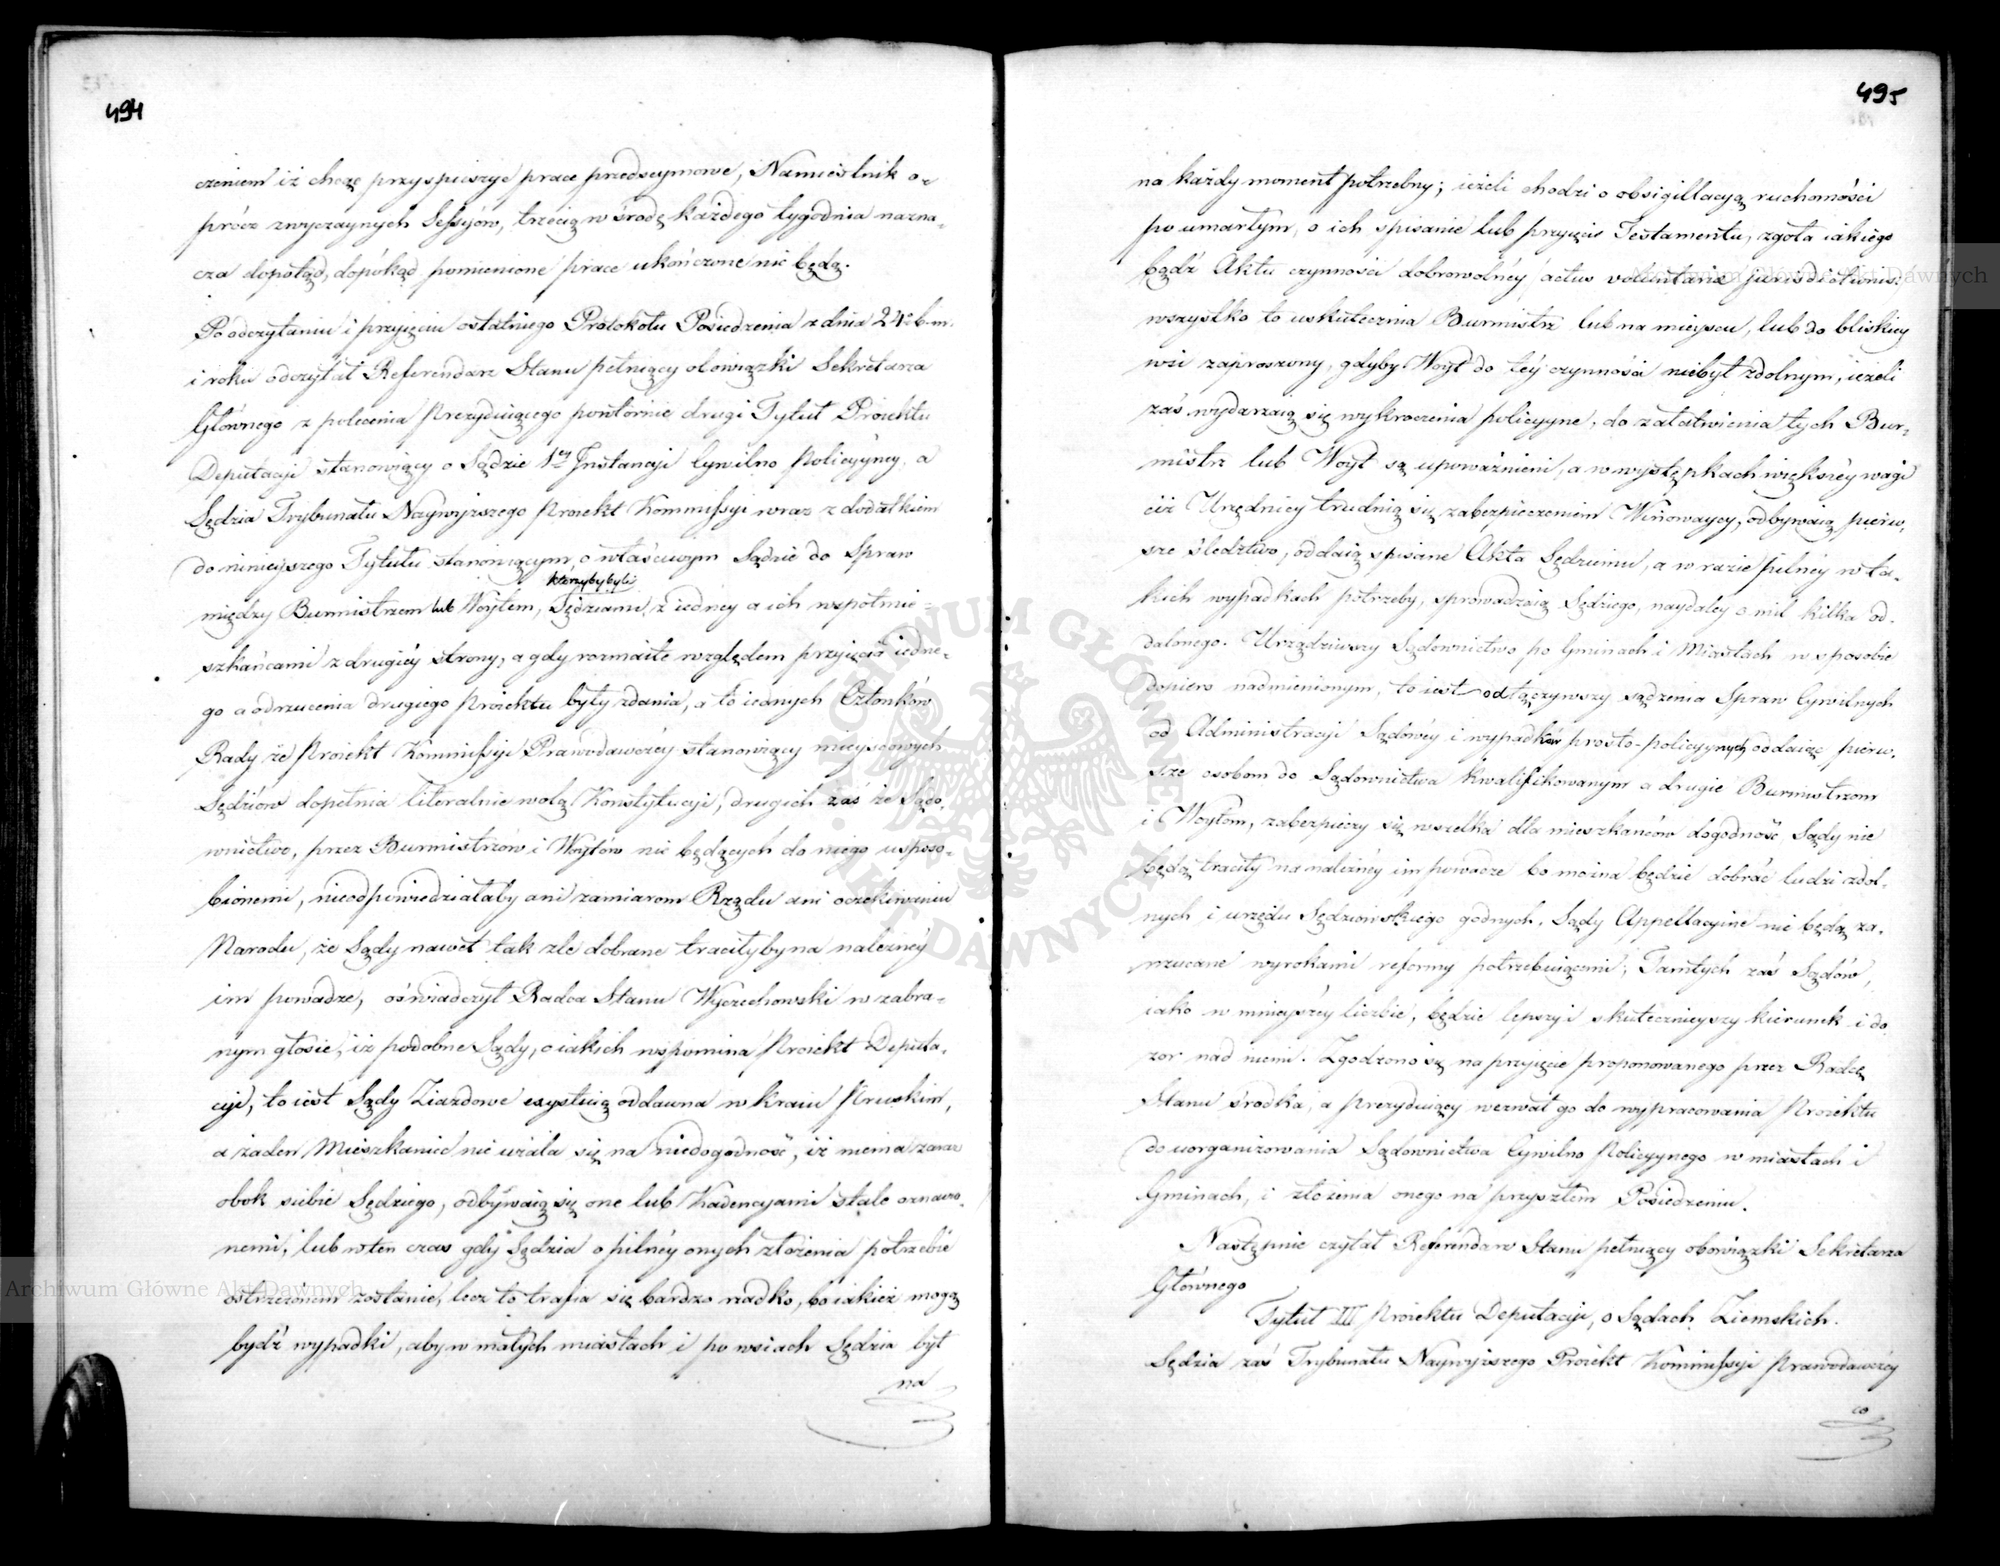 494
czeniem iż chcę przyspieszyć prace przedseymowe, Namiestnik o-
prócz zwyczaynych Sessyiów, trzecią w środę każdego tygodnia nazna-
cza dopotąd, dopókąd pomienione prace ukończone nie będą.
Po odczytaniu i przyjęciu ostatniego Protokołu Posiedzenia z dnia 24 b. m.
i roku odczytał Referendarz Stanu pełniący obowiązki Sekretarza
Głównego z polecenia Prezyduiącego powtórnie drugi Tytuł Proiektu
Deputacyi stanowiący o Sądzie 1ey Instancyi Cywilno Policyyney, a
Sędzia Trybunału Naywyższego Proiekt Kommissyi wraz z dodatkiem
do niniejszego Tytułu stanowiącym, o właściwym Sądzie do Spraw
którzyby byli
między Burmistrzem lub Woytem, Sędziami, z iedney a ich współmie-
szkańcami z drugiéy strony, a gdy rozmaite względem przyjęcia iedne-
go a odrzucenia drugiego Proiektu były zdania, a to iednych Członków
Rady że Proiekt Kommissyi Prawodawczéy stanowiący mieyscowych
Sędziów dopełnia literalnie wolą Konstytucyi, drugich zaś że Sądo-
wnictwo, przez Burmistrzów i Woytów nie będących do niego usposo-
bionemi, nieodpowiedziałaby ani zamiarom Rządu ani oczekiwaniu
Narodu, że Sądy nawet tak źle dobrane traciłyby na należnéy
im powadze, oświadczył Radca Stanu Wyczechowski w zabra-
nym głosie, iż podobne Sądy, o iakich wspomina Proiekt Deputa-
cyi, to iest Sądy Ziazdowe exystuią oddawna w kraiu Pruskim,
a żaden Mieszkaniec nie użala się na niedogodność, iż niema zaraz
obok siebie Sędziego, odbywaią się one lub Kadencyami stale oznaczo-
nemi, lub w ten czas gdy Sędzia o pilnéy onych złożenia potrzebie
ostrzeżonem zostanie, lecz to trafia się bardzo rzadko, bo iakież mogą
bydź wypadki, aby w małych miastach i po wsiach Sędzia był
na
495
na każdy moment potrzebny; ieżeli chodzi o obsigillacyą ruchomości
po umarłym, o ich spisanie lub przyjęcie Testamentu, zgoła iakiego
bądź Aktu czynności dobrowolnéy, actus voluntariae jurisdictionis,
wszystko to uskutecznia Burmistrz lub na mieyscu, lub do bliskiey
wsi zaproszony, gdyby Woyt do téy czynności niebył zdolnym, ieżeli
zaś wydarzaią się wykroczenia policyyne, do załatwienia tych Bur-
mistrz lub Woyt są upoważnieni, a w występkach większéy wagi
ciż Urzędnicy trudnią się zabezpieczeniem Winowaycy, odbywaią pierw-
sze śledztwo, oddaią spisane Akta Sędziemu, a w razie pilnéy w ta-
kich wypadkach potrzeby, sprowadzaią Sędziego, naydaley o mil kilka od-
dalonego. Urządziwszy Sądownictwo po Gminach i Miastach w sposobie
dopiero nadmienionym, to iest odłączywszy sądzenia Spraw Cywilnych
od Administracyi Sądowéy i wypadków prosto-policyynych oddaiąc pierw-
sze osobom do Sądownictwa kwalifikowanym a drugie Burmistrzom
i Woytom, zabezpieczy się wszelka dla mieszkańców dogodność, Sądy nie
będą traciły na należnéy im powadze bo można będzie dobrać ludzi zdol-
nych i urzędu Sędziowskiego godnych, Sądy Appellacyine nie będą za-
rzucane wyrokami reformy potrzebuiącemi; Tamtych zaś Sądów,
iako w mnieyszéy liczbie, będzie lepszy i skutecznieyszy kierunek i do-
zor nad niemi. Zgodzono się na przyjęcie proponowanego przez Radcę
Stanu środka, a Prezyduiący wezwał go do wypracowania Proiektu
do uorganizowania Sądownictwa Cywilno Policyynego w miastach i
Gminach, i złożenia onego na przyszłém Posiedzeniu.
Następnie czytał Referendarz Stanu pełniący obowiązki Sekretarza
Głównego
Tytuł III Proiektu Deputacyi, o Sądach Ziemskich.
Sędzia zaś Trybunału Naywyższego Proiekt Kommissyi Prawodawczéy
co
ARCHIWUM GŁÓWNE AKT DAWNYCH
Archiwum Główne Akt Dawnych
Archiwum Główne Akt Dawnych